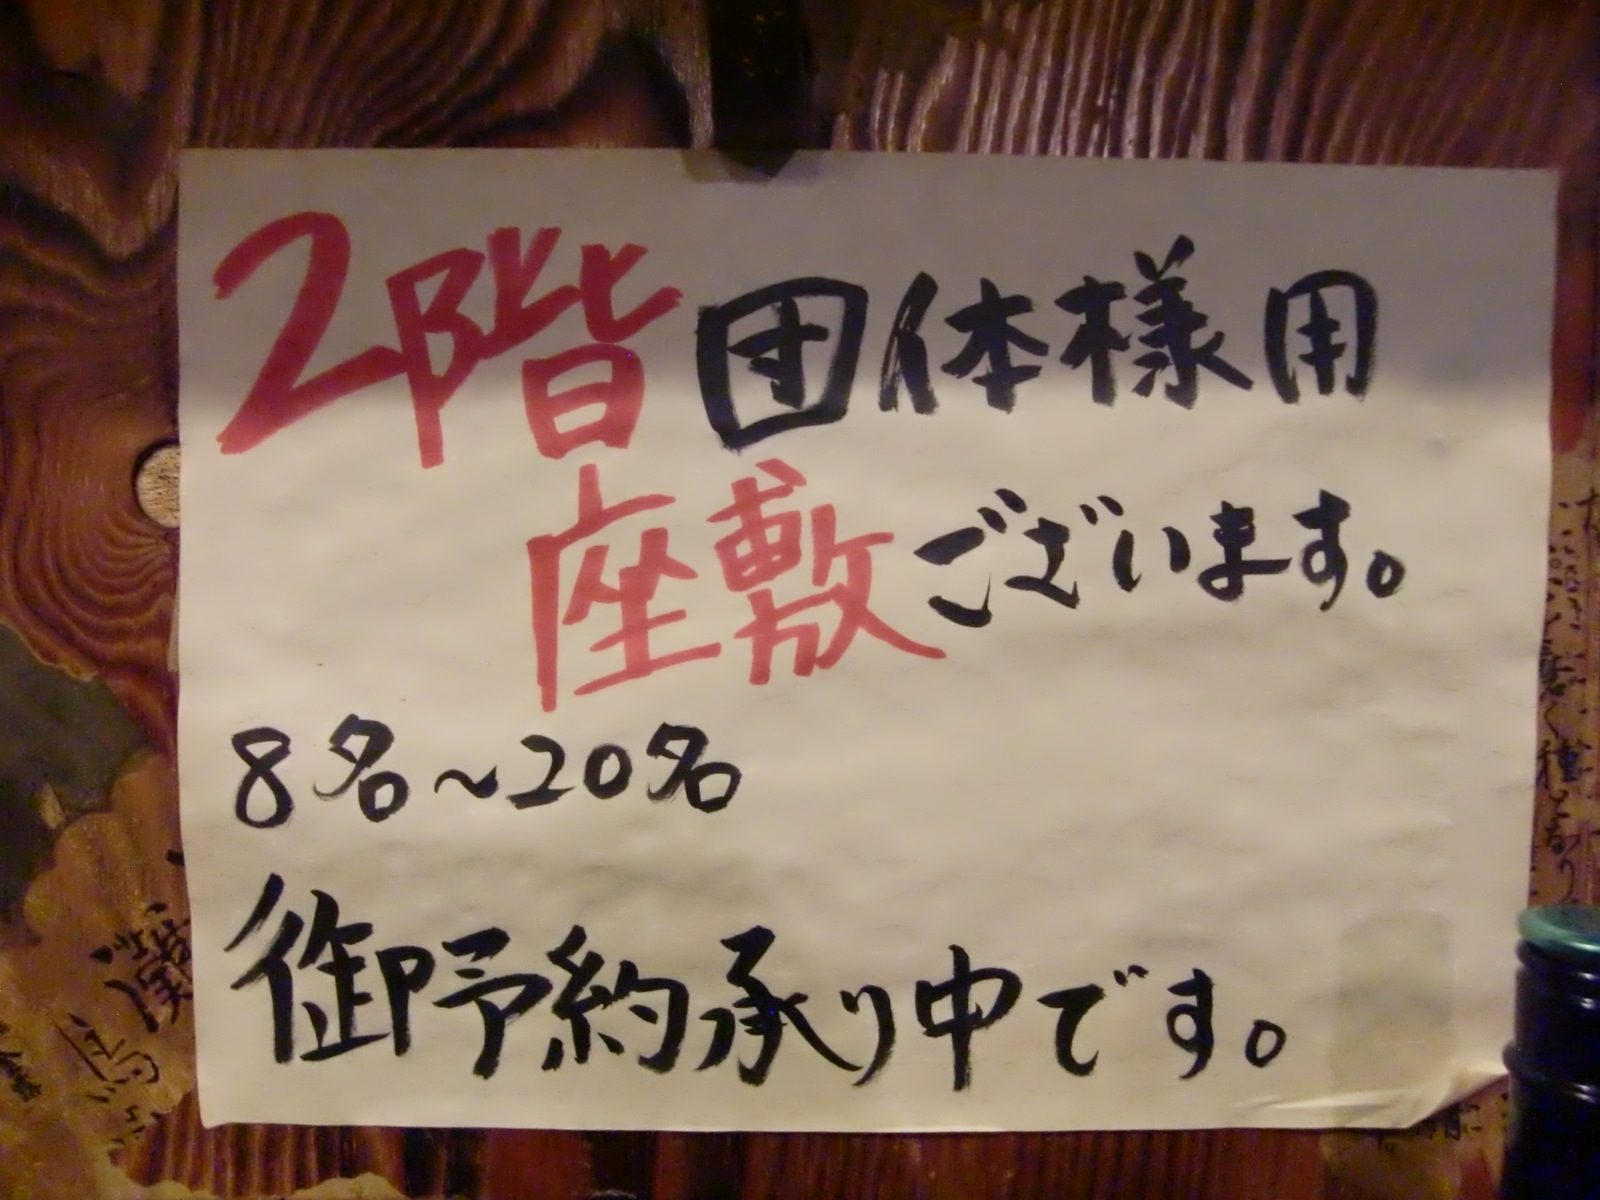 2階団体様用
座敷ございます。
8名〜20名
御予約承り中です。